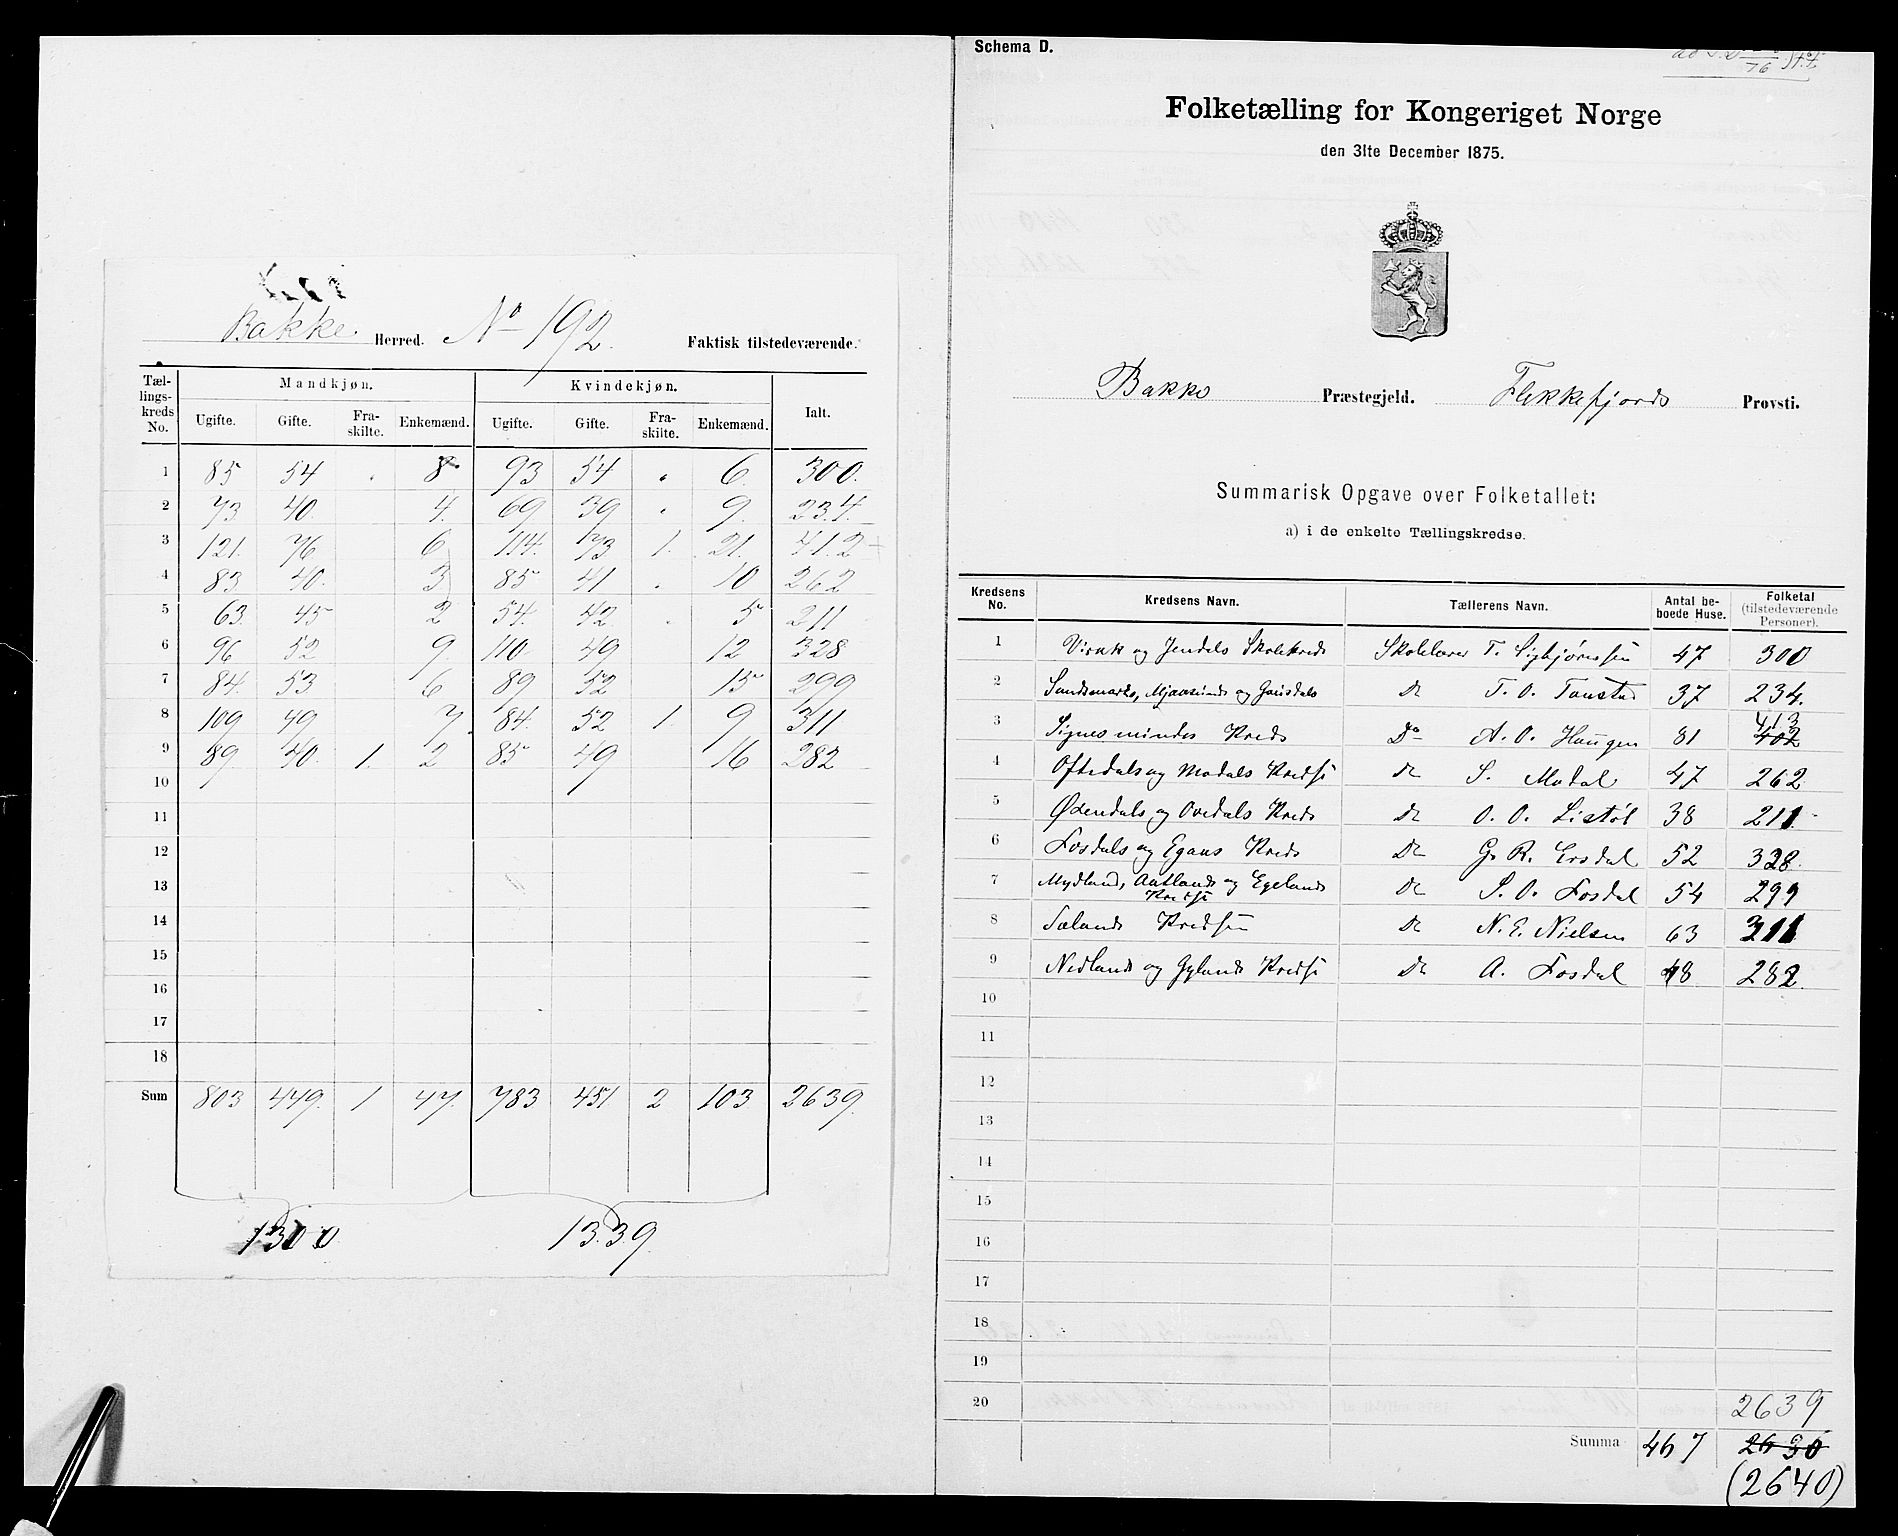 Bakke Herred. No 192. Faktisk tilstedeværende.
Tællingskreds No. Mandkjøn. Kvindekjøn. Ialt.
Ugifte. Gifte. Fraskilte. Enkemænd. Ugifte. Gifte. Fraskilte. Enkemænd.
1 85 54 . 8 93 54 . 6. 300.
2 73 40. 4. 69 39 . 9. 234.
3 121. 76 6 114. 73 1. 21. 412
4 83. 40. 3 85 41 . 10 262
5 63. 45 2 54. 42. . 5 211
6 96 52 9. 110 49 12 328
7 84. 53 6 89 52 15 299
8 109 49 7. 84. 52 1. 9 311
9 89. 40. 1. 2 85 49 16 282
10
11
12
13
14
15
16
17
18
Sum 803 449. 1 47. 783 451 2 103 2639.
1300 1339.
Schema D.
Folketælling for Kongeriget Norge
den 31te December 1875.
Bakke Præstegjeld. Flekkefjords Provsti.
Summarisk Opgave over Folketallet:
a) i de enkelte Tællingskredse.
Kredsens No. Kredsens Navn. Tællerens Navn. Antal beboede Huse. Folketal (tilstedeværende Personer).
1 Virak og Jendals Skolekreds Skolelærer T. Sigbjørnsen 47 300
2 og Do T. O. Tonstad 37 234.
413
3 Signes mindes Kreds Do A. O. Haugen 81 402
4 Oftedals og Modals Kredse Do S. Modal 47 262
5 Øxendals og Ovedals Kreds Do O. O. Listøl 38 211.
6 Losdals og Egans Kreds Do G. R. Ersdal 52 328.
7 Mydland, og Egelands Do S. O. Losdal 54 299
Kredse
8 Sælands Kredsen Do N. E. Nielsen 63 311
9 Nedlands og Gylands Kredse Do A. Losdal 48 282.
10
11
12
13
14
15
16
17
18
19
20 2639
Summa 467 2630
(2640)